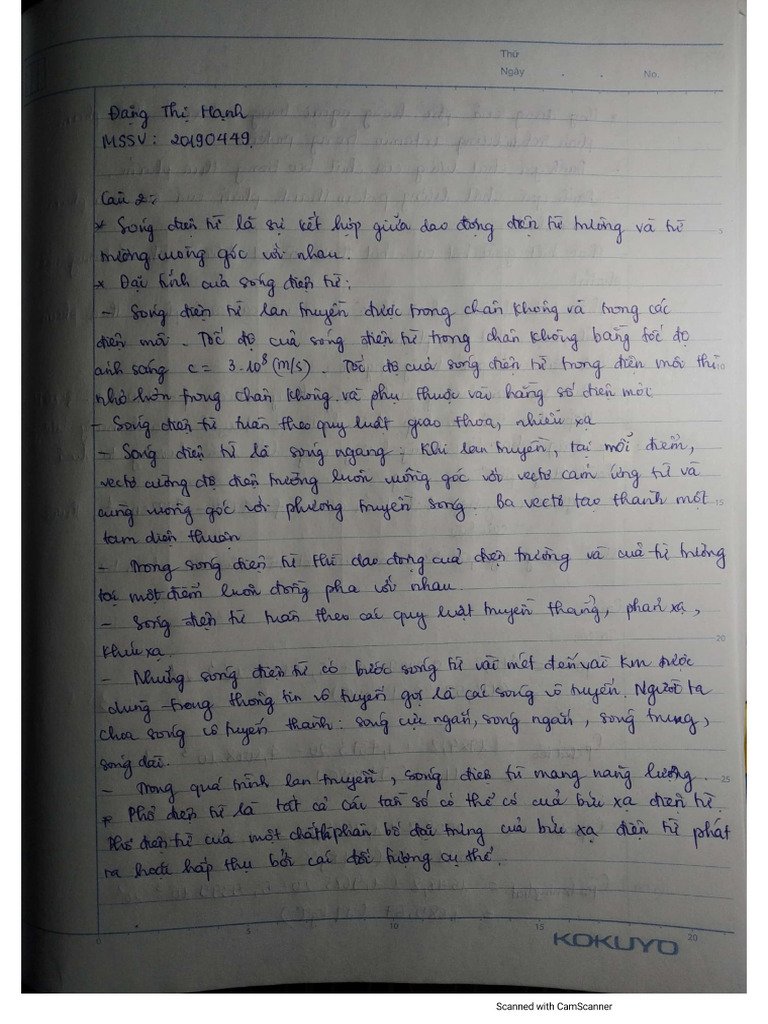 Thứ
Ngày . . No.
Đặng Thị Hạnh
MSSV: 20190449
Câu 2:
* Sóng điện từ là sự kết hợp giữa dao động điện từ trường và từ
trường vuông góc với nhau.
* Đặc tính của sóng điện từ:
- Sóng điện từ lan truyền được trong chân không và trong các
điện môi. Tốc độ của sóng điện từ trong chân không bằng tốc độ
ánh sáng c = 3.10⁸ (m/s). Tốc độ của sóng điện từ trong điện môi thì
nhỏ hơn trong chân không và phụ thuộc vào hằng số điện môi
- Sóng điện từ tuân theo quy luật giao thoa, nhiễu xạ
- Sóng điện từ là sóng ngang: Khi lan truyền, tại mỗi điểm,
vectơ cường độ điện trường luôn vuông góc với vectơ cảm ứng từ và
cùng vuông góc với phương truyền sóng. Ba vectơ tạo thành một
tam diện thuận
- Trong sóng điện từ thì dao động của điện trường và của từ trường
tại một điểm luôn đồng pha với nhau.
- Sóng điện từ tuân theo các quy luật truyền thẳng, phản xạ,
khúc xạ.
- Những sóng điện từ có bước sóng từ vài mét đến vài km được
dùng trong thông tin vô tuyến gọi là các sóng vô tuyến. Người ta
chia sóng vô tuyến thành: sóng cực ngắn, sóng ngắn, sóng trung,
sóng dài.
- Trong quá trình lan truyền, sóng điện từ mang năng lượng.
* Phổ điện từ là tất cả các tần số có thể có của bức xạ điện từ.
Phổ điện từ của một chất phân bố đặc trưng của bức xạ điện từ phát
ra hoặc hấp thụ bởi các đối tượng cụ thể.
5
10
15
20
25
0 5 10 15 20
KOKUYO
Scanned with CamScanner